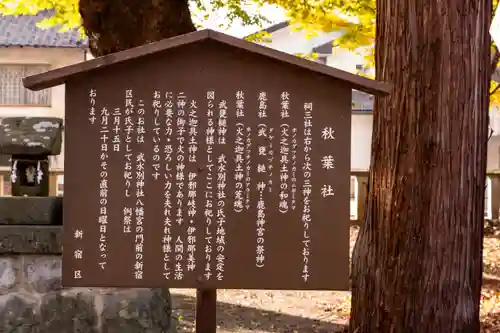 秋葉社
祠三社は右から次の三神をお祀りしております
秋葉社(火之迦具土神の和魂)
鹿島社(武甕槌神…鹿島神宮の祭神)
秋葉社(火之迦具土神の荒魂)
武甕槌神は 武水別神社の氏子地域の安定を
図られる神様としてここにお祀りしております
火之迦具土神は 伊邪那岐神・伊邪那美神
二神の御子で火の神様であります 人間の生活
に必要な力・恐ろしい力を夫れ夫れ神様として
お祀りしているのです
このお社は 武水別神社八幡宮の門前の新宿
区民が氏子としてお祀りし 例祭は
三月十五日
九月二十日かその直前の日曜日となって
おります
新宿区